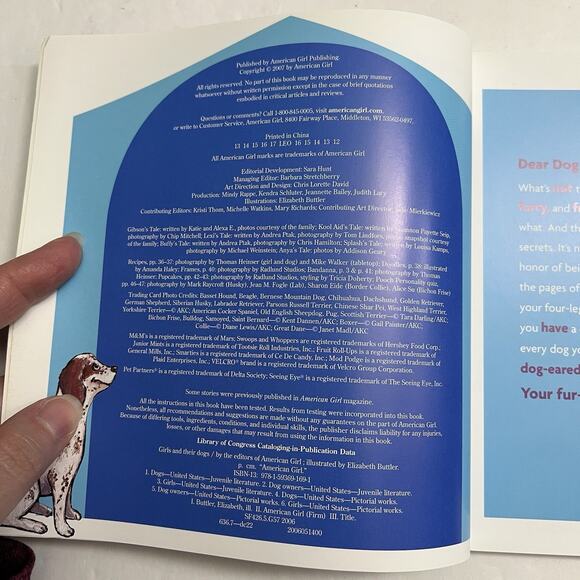 Published by American Girl Publishing.
Copyright © 2007 by American Girl
All rights reserved. No part of this book may be reproduced in any manner
whatsoever without written permission except in the case of brief quotations
embodied in critical articles and reviews.
Questions or comments? Call 1-800-845-0005, visit americangirl.com,
or write to Customer Service, American Girl, 8400 Fairway Place, Middleton, WI 53562-0497.
Printed in China
13 14 15 16 17 LEO 16 15 14 13 12
All American Girl marks are trademarks of American Girl
Editorial Development: Sara Hunt
Managing Editor: Barbara Stretchberry
Art Direction and Design: Chris Lorette David
Production: Mindy Rappe, Kendra Schluter, Jeannette Bailey, Judith Lary
Illustrations: Elizabeth Buttler
Contributing Editors: Kristi Thom, Michelle Watkins, Mary Richards; Contributing Art Director: Mierkiewicz
Gibson's Tale: written by Katie and Alexa E., photos courtesy of the family; Kool Aid's Tale: written by Payette Seip,
photography by Chip Mitchell; Lexi's Tale: written by Andrea Ptak, photography by Tom snapshot courtesy
of the family; Bully's Tale: written by Andrea Ptak, photography by Chris Hamilton; Splash's Tale: written by Louisa Kamps,
photography by Michael Weinstein; Anya's Tale: photos by Addison Geary
Recipes, pp. 36–37: photography by Thomas Heinser (girl and dog) and Mike Walker (tabletop); Doodles, p. 38: illustrated
by Amanda Haley; Frames, p. 40: photography by Radlund Studios; Bandanna, p. 3 & p. 41: photography by Thomas
Heinser; Pupcakes, pp. 42–43: photography by Radlund Studios, styling by Tricia Doherty; Pooch Personality quiz,
pp. 46–47: photography by Mark Raycroft (Husky), Jean M. Fogle (Lab), Sharon Eide (Border Collie), Alice Su (Bichon Frise)
Trading Card Photo Credits: Basset Hound, Beagle, Bernese Mountain Dog, Chihuahua, Dachshund, Golden Retriever,
German Shepherd, Siberian Husky, Labrador Retriever, Parsons Russell Terrier, Chinese Shar Pei, West Highland Terrier,
Yorkshire Terrier—© AKC; American Cocker Spaniel, Old English Sheepdog, Pug, Scottish Terrier—© Tara Darling/AKC;
Bichon Frise, Bulldog, Samoyed, Saint Bernard—© Kent Dannen/AKC; Boxer—© Gail Painter/AKC;
Collie—© Diane Lewis/AKC; Great Dane—© Janet Madl/AKC
M&M's is a registered trademark of Mars; Swoops and Whoppers are registered trademarks of Hershey Food Corp.;
Junior Mints is a registered trademark of Tootsie Roll Industries, Inc.; Fruit Roll-Ups is a registered trademark of
General Mills, Inc.; Smarties is a registered trademark of Ce De Candy, Inc.; Mod Podge is a registered trademark of
Plaid Enterprises, Inc.; VELCRO® brand is a registered trademark of Velcro Group Corporation.
Pet Partners® is a registered trademark of Delta Society; Seeing Eye® is a registered trademark of The Seeing Eye, Inc.
Some stories were previously published in American Girl magazine.
All the instructions in this book have been tested. Results from testing were incorporated into this book.
Nonetheless, all recommendations and suggestions are made without any guarantees on the part of American Girl.
Because of differing tools, ingredients, conditions, and individual skills, the publisher disclaims liability for any injuries,
losses, or other damages that may result from using the information in this book.
Library of Congress Cataloging-in-Publication Data
Girls and their dogs / by the editors of American Girl ; illustrated by Elizabeth Buttler.
p. cm. "American Girl."
ISBN-13: 978-1-59369-169-1
1. Dogs—United States—Juvenile literature. 2. Dog owners—United States—Juvenile literature.
3. Girls—United States—Juvenile literature. 4. Dogs—United States—Pictorial works.
5. Dog owners—United States—Pictorial works. 6. Girls—United States—Pictorial works.
I. Buttler, Elizabeth, ill. II. American Girl (Firm) III. Title.
SF426.5.G57 2006
636.7—dc22 2006051400
Dear Dog
What's
furry, and
what. And th
secrets. It's n
honor of bei
the pages of
your four-leg
you have a
every dog yo
dog-eared
Your fur-